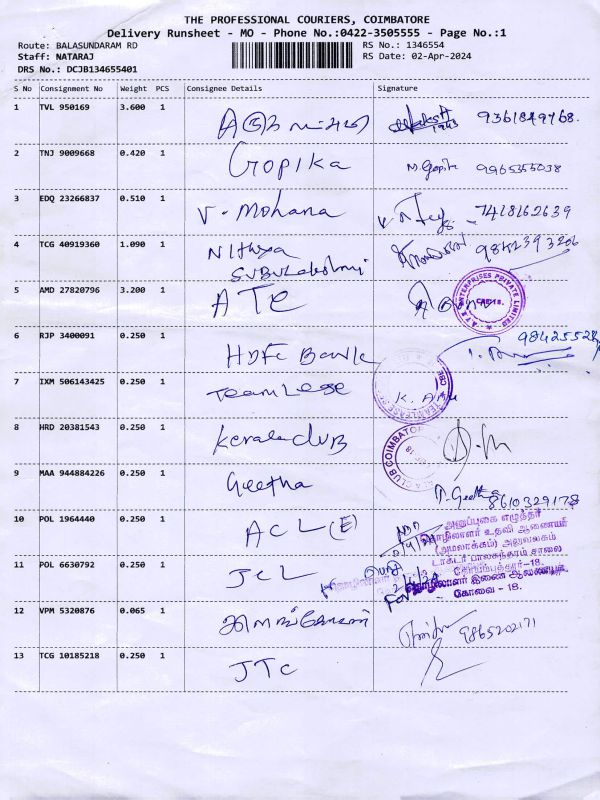 THE PROFESSIONAL COURIERS, COIMBATORE
Delivery Runsheet - MO - Phone No.:0422-3505555 - Page No.:1
Route: BALASUNDARAM RD
RS No.: 1346554
Staff: NATARAJ
RS Date: 02-Apr-2024
DRS No.: DCJB134655401
S No Consignment No Weight PCS Consignee Details Signature
1 TVL 950169 3.600 1 9361849768.
2 TNJ 9009668 0.420 1 Gopika M. Gopika 9965355038
3 EDQ 23266837 0.510 1 V. Mohana 7418162639
4 TCG 40919360 1.090 1 Nithya 9842393206
Subulakshmi
5 AMD 27820796 3.200 1 ATE
A.T.E ENTERPRISES PRIVATE LIMITED
CBE-18.
6 RJP 3400091 0.250 1 HDFC Bank
7 IXM 506143425 0.250 1 TeamLese
8 HRD 20381543 0.250 1 Keralaclub
9 MAA 944884226 0.250 1 Geetha P. Geetha 8610329178
10 POL 1964440 0.250 1 ACL (E)
அனுப்புகை எழுத்தர்
தொழிலாளர் உதவி ஆணையர்
(அமலாக்கம்) அலுவலகம்
டாக்டர் பாலசுந்தரம் சாலை
கோயம்புத்தூர்-18.
11 POL 6630792 0.250 1 JCL
தொழிலாளர் இணை ஆணையர்
கோவை - 18.
12 VPM 5320876 0.065 1 9865202171
13 TCG 10185218 0.250 1 JTC